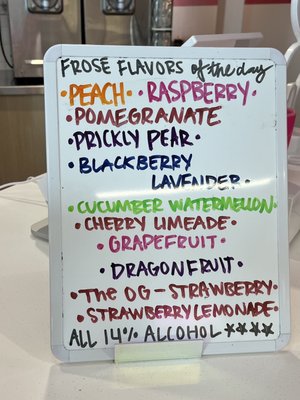 FROSE FLAVORS of the day
• PEACH • • RASPBERRY •
• POMEGRANATE
• PRICKLY PEAR •
• BLACKBERRY
LAVENDER •
• CUCUMBER WATERMELON •
• CHERRY LIMEADE •
• GRAPEFRUIT •
• DRAGONFRUIT •
• THE OG - STRAWBERRY •
• STRAWBERRY LEMONADE •
ALL 14% ALCOHOL ★★★★